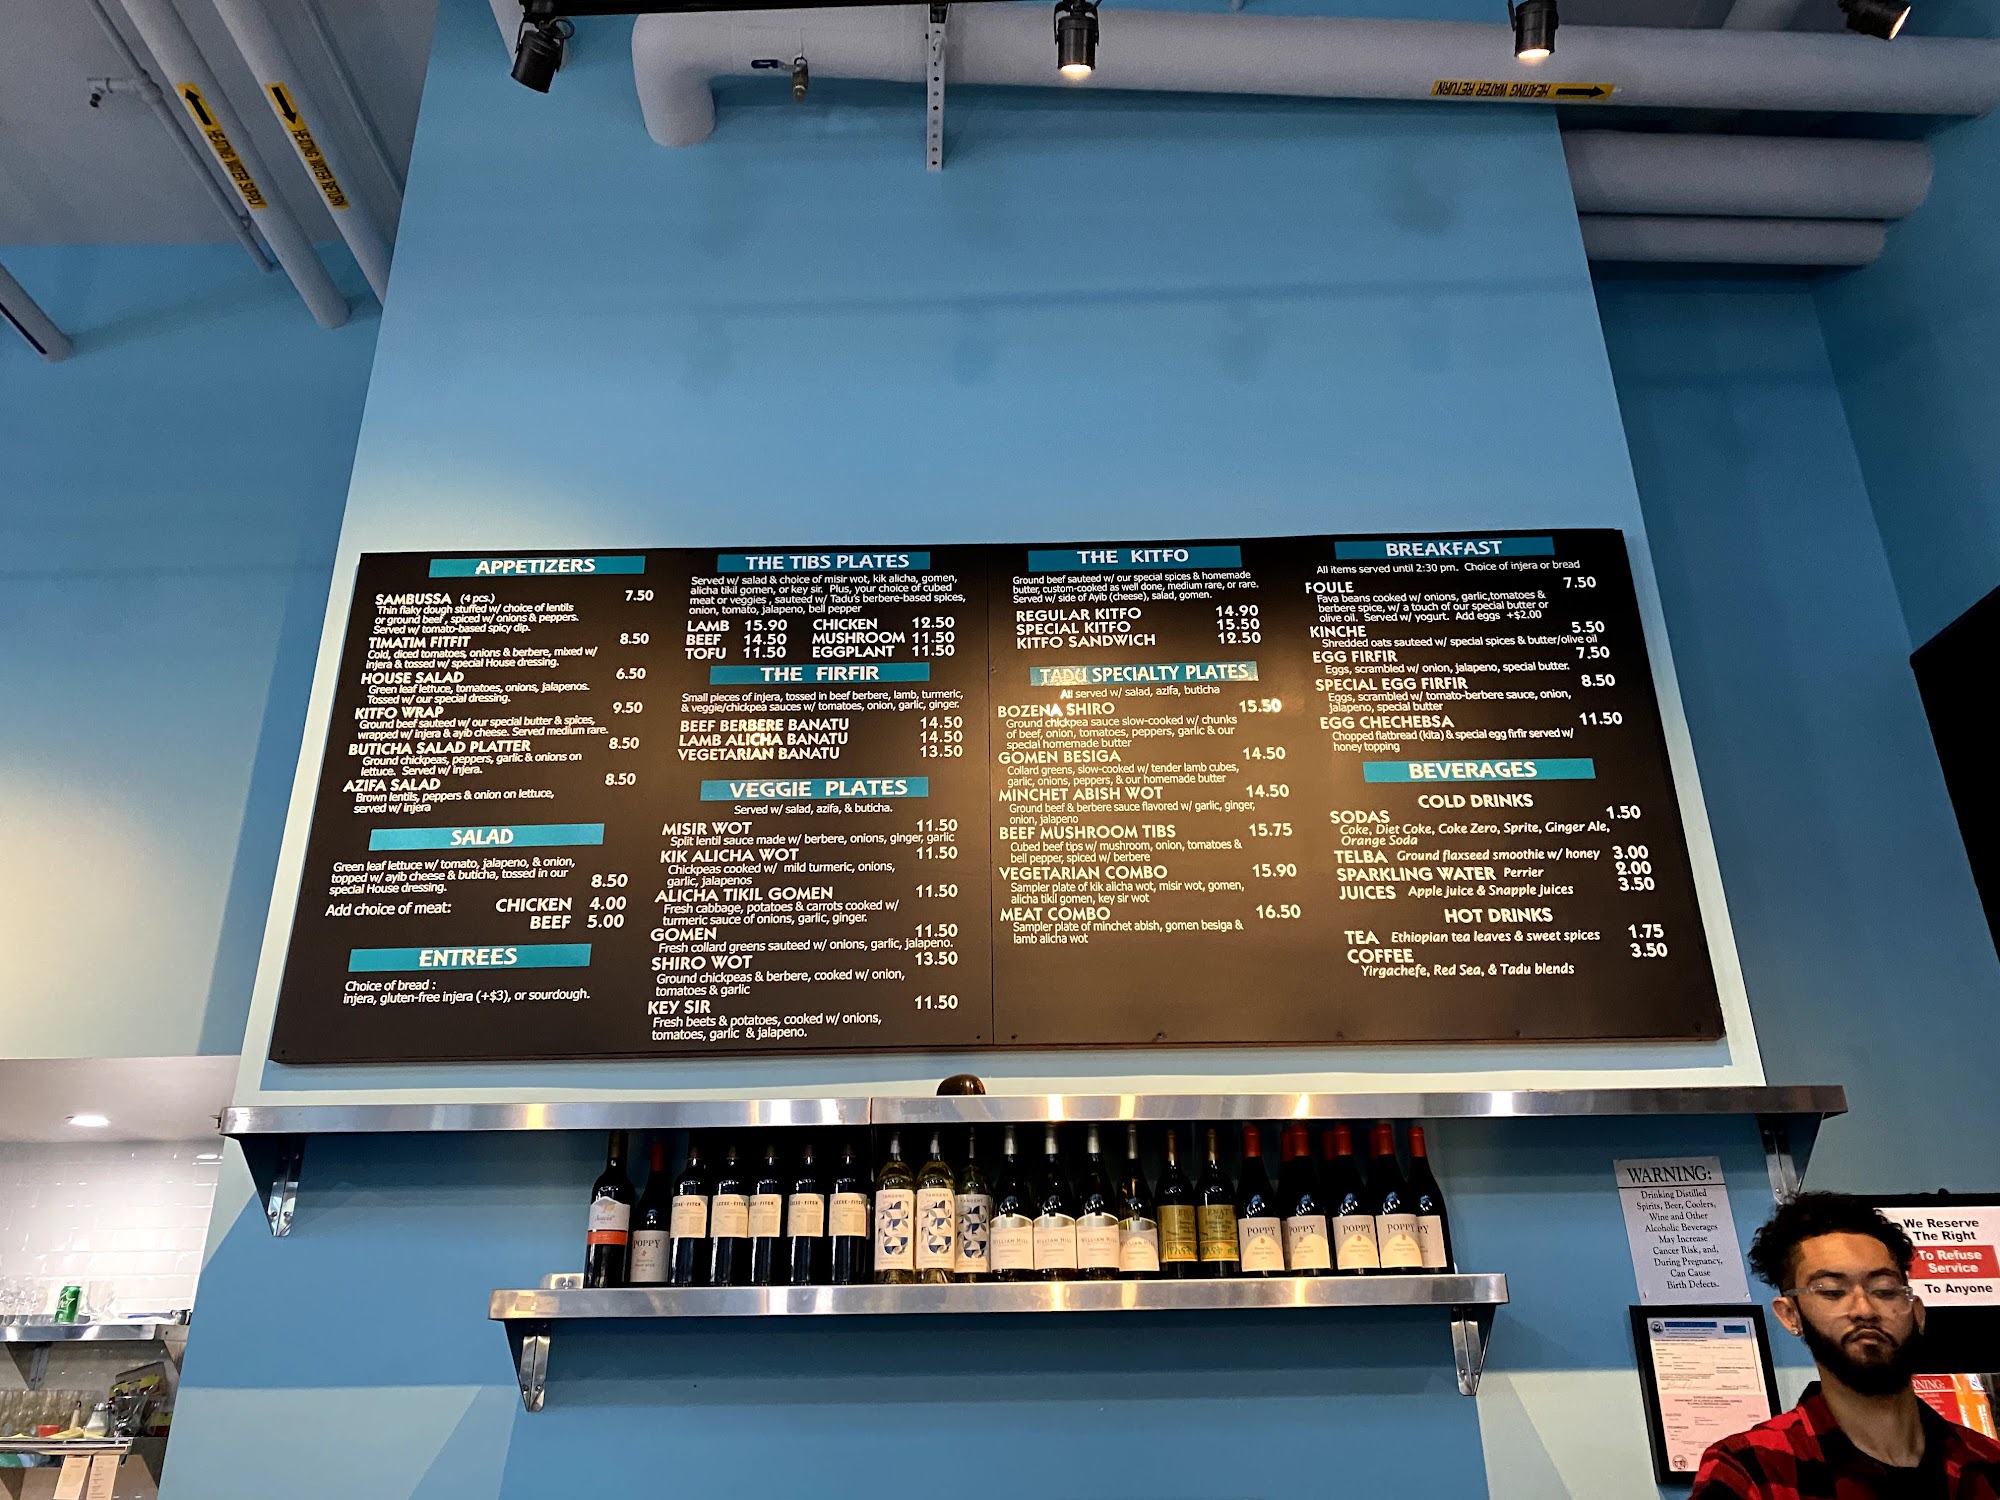 HEATING WATER SUPPLY
HEATING WATER RETURN
HEATING WATER RETURN
APPETIZERS
SAMBUSSA (4 pcs.) 7.50
Thin flaky dough stuffed w/ choice of lentils
or ground beef, spiced w/ onions & peppers.
Served w/ tomato-based spicy dip.
TIMATIM FITFIT 8.50
Cold, diced tomatoes, onions & berbere, mixed w/
injera & tossed w/ special House dressing.
HOUSE SALAD 6.50
Green leaf lettuce, tomatoes, onions, jalapenos.
Tossed w/ our special dressing.
KITFO WRAP 9.50
Ground beef sauteed w/ our special butter & spices,
wrapped w/ injera & ayib cheese. Served medium rare.
BUTICHA SALAD PLATTER 8.50
Ground chickpeas, peppers, garlic & onions on
lettuce. Served w/ injera.
AZIFA SALAD 8.50
Brown lentils, peppers & onion on lettuce,
served w/ injera
SALAD
Green leaf lettuce w/ tomato, jalapeno, & onion,
topped w/ ayib cheese & buticha, tossed in our
special House dressing. 8.50
Add choice of meat: CHICKEN 4.00
BEEF 5.00
ENTREES
Choice of bread :
injera, gluten-free injera (+$3), or sourdough.
THE TIBS PLATES
Served w/ salad & choice of misir wot, kik alicha, gomen,
alicha tikil gomen, or key sir. Plus, your choice of cubed
meat or veggies , sauteed w/ Tadu's berbere-based spices,
onion, tomato, jalapeno, bell pepper
LAMB 15.90 CHICKEN 12.50
BEEF 14.50 MUSHROOM 11.50
TOFU 11.50 EGGPLANT 11.50
THE FIRFIR
Small pieces of injera, tossed in beef berbere, lamb, turmeric,
& veggie/chickpea sauces w/ tomatoes, onion, garlic, ginger.
BEEF BERBERE BANATU 14.50
LAMB ALICHA BANATU 14.50
VEGETARIAN BANATU 13.50
VEGGIE PLATES
Served w/ salad, azifa, & buticha.
MISIR WOT 11.50
Split lentil sauce made w/ berbere, onions, ginger, garlic
KIK ALICHA WOT 11.50
Chickpeas cooked w/ mild turmeric, onions,
garlic, jalapenos
ALICHA TIKIL GOMEN 11.50
Fresh cabbage, potatoes & carrots cooked w/
turmeric sauce of onions, garlic, ginger.
GOMEN 11.50
Fresh collard greens sauteed w/ onions, garlic, jalapeno.
SHIRO WOT 13.50
Ground chickpeas & berbere, cooked w/ onion,
tomatoes & garlic
KEY SIR 11.50
Fresh beets & potatoes, cooked w/ onions,
tomatoes, garlic & jalapeno.
THE KITFO
Ground beef sauteed w/ our special spices & homemade
butter, custom-cooked as well done, medium rare, or rare.
Served w/ side of Ayib (cheese), salad, gomen.
REGULAR KITFO 14.90
SPECIAL KITFO 15.50
KITFO SANDWICH 12.50
TADU SPECIALTY PLATES
All served w/ salad, azifa, buticha
BOZENA SHIRO 15.50
Ground chickpea sauce slow-cooked w/ chunks
of beef, onion, tomatoes, peppers, garlic & our
special homemade butter
GOMEN BESIGA 14.50
Collard greens, slow-cooked w/ tender lamb cubes,
garlic, onions, peppers, & our homemade butter
MINCHET ABISH WOT 14.50
Ground beef & berbere sauce flavored w/ garlic, ginger,
onion, jalapeno
BEEF MUSHROOM TIBS 15.75
Cubed beef tips w/ mushroom, onion, tomatoes &
bell pepper, spiced w/ berbere
VEGETARIAN COMBO 15.90
Sampler plate of kik alicha wot, misir wot, gomen,
alicha tikil gomen, key sir wot
MEAT COMBO 16.50
Sampler plate of minchet abish, gomen besiga &
lamb alicha wot
BREAKFAST
All items served until 2:30 pm. Choice of injera or bread
FOULE 7.50
Fava beans cooked w/ onions, garlic,tomatoes &
berbere spice, w/ a touch of our special butter or
olive oil. Served w/ yogurt. Add eggs +$2.00
KINCHE 5.50
Shredded oats sauteed w/ special spices & butter/olive oil
EGG FIRFIR 7.50
Eggs, scrambled w/ onion, jalapeno, special butter.
SPECIAL EGG FIRFIR 8.50
Eggs, scrambled w/ tomato-berbere sauce, onion,
jalapeno, special butter
EGG CHECHEBSA 11.50
Chopped flatbread (kita) & special egg firfir served w/
honey topping
BEVERAGES
COLD DRINKS
SODAS 1.50
Coke, Diet Coke, Coke Zero, Sprite, Ginger Ale,
Orange Soda
TELBA Ground flaxseed smoothie w/ honey 3.00
SPARKLING WATER Perrier 2.00
JUICES Apple juice & Snapple juices 3.50
HOT DRINKS
TEA Ethiopian tea leaves & sweet spices 1.75
COFFEE 3.50
Yirgachefe, Red Sea, & Tadu blends
POPPY
TANGENT
TANGENT
TANGENT
WILLIAM HILL
WILLIAM HILL
POPPY
POPPY
POPPY
POPPY
WARNING:
Drinking Distilled
Spirits, Beer, Coolers,
Wine and Other
Alcoholic Beverages
May Increase
Cancer Risk, and,
During Pregnancy,
Can Cause
Birth Defects.
We Reserve
The Right
To Refuse
Service
To Anyone